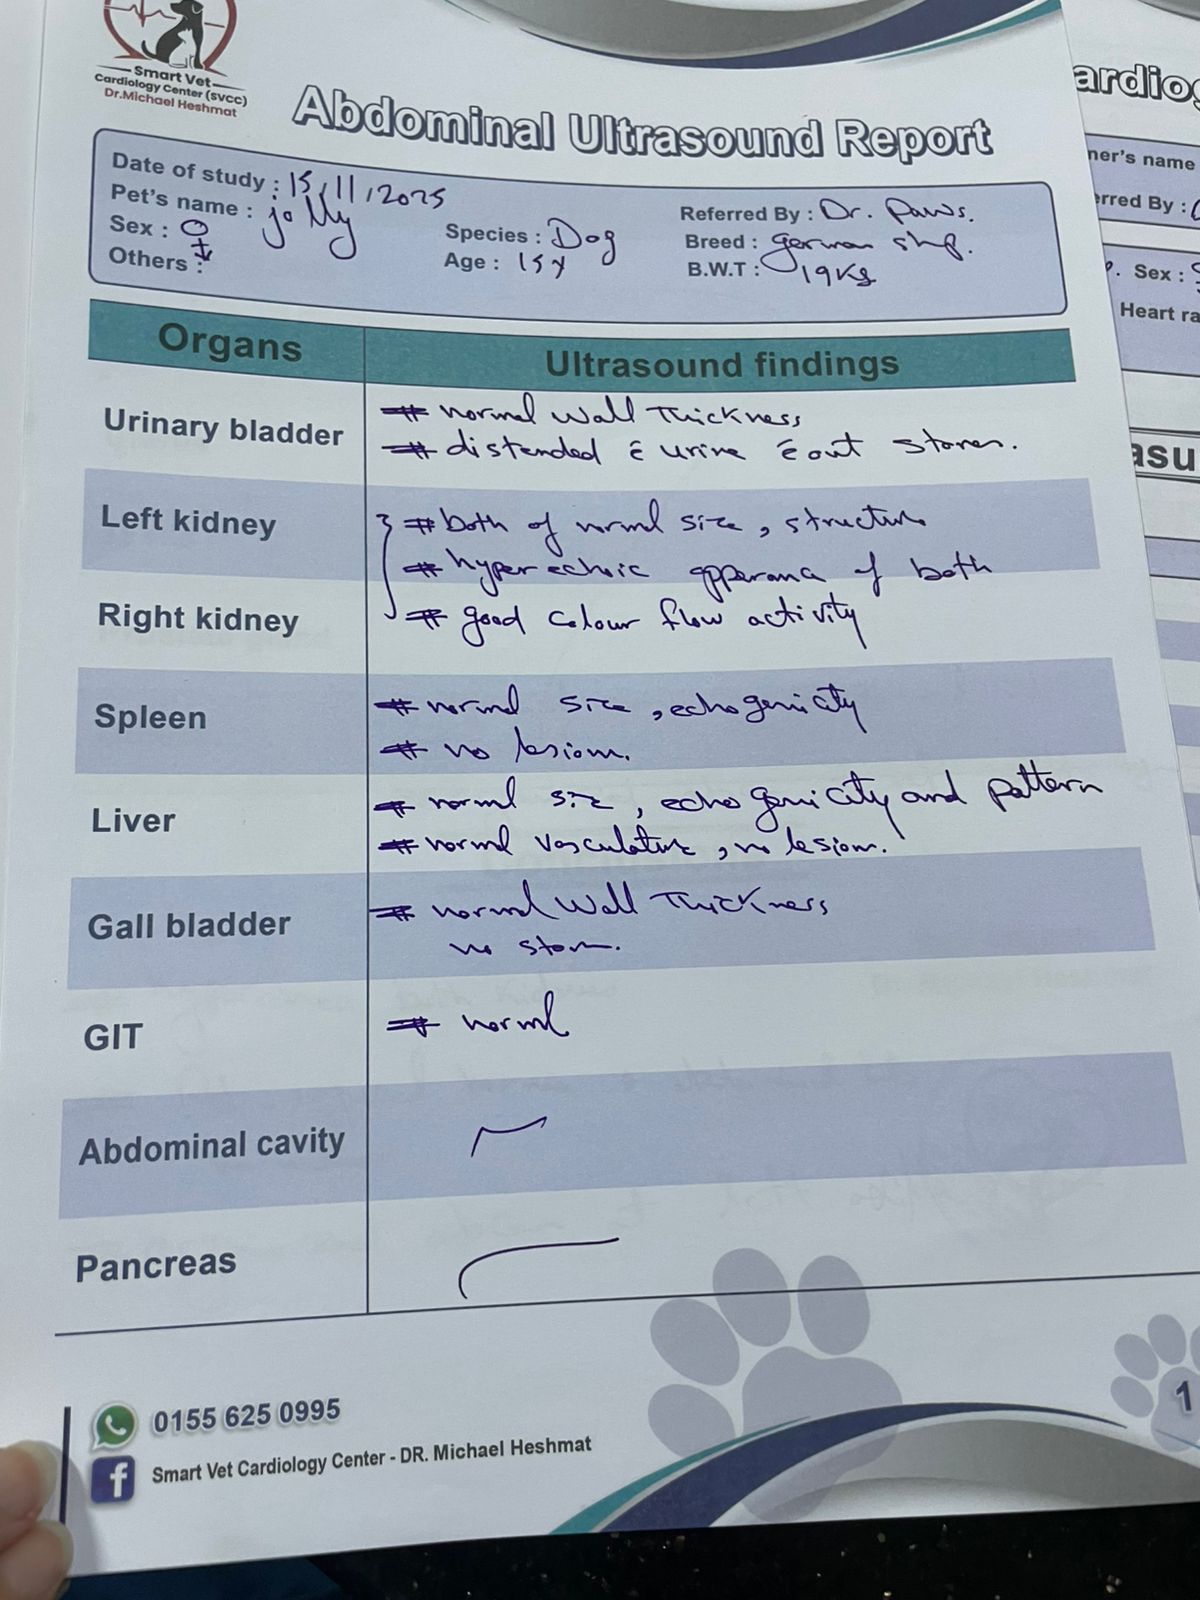 Smart Vet
Cardiology Center (SVCC)
Dr.Michael Heshmat
Abdominal Ultrasound Report
Date of study : 15/11/2025
Pet's name : jolly
Sex : ♀
Others :
Species : Dog
Age : 15y
Referred By : Dr. Paws.
Breed : german shp.
B.W.T : 19Kg
Organs
Ultrasound findings
Urinary bladder
# normal wall Thickness
# distended c̄ urine c̄out stones.
Left kidney
Right kidney
# both of normal size, structure
# hyperechoic of both
# good colour flow activity
Spleen
# normal size, echogenicity
# no lesions.
Liver
# normal size, echogenicity and pattern
# normal vasculature, no lesions.
Gall bladder
# normal wall Thickness
no stones.
GIT
# normal
Abdominal cavity
Pancreas
0155 625 0995
Smart Vet Cardiology Center - DR. Michael Heshmat
ardiog
ner's name
erred By :
Sex :
Heart ra
asu
1